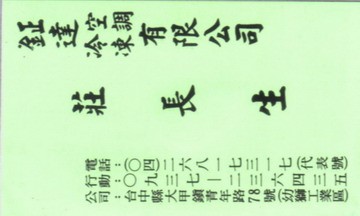 鉦達空調冷凍有限公司
莊長生
電話:(〇四)二六八一七三一七(代表號)
行動:〇九三七-二三六四三五
公司:台中縣大甲鎮青年路78號(幼獅工業區)